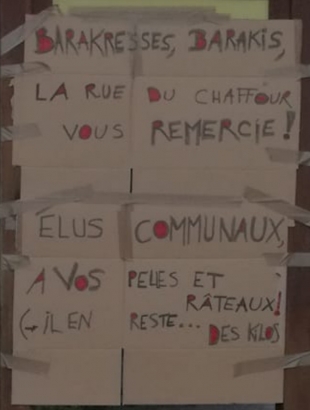 BARAKRESSES, BARAKIS,
LA RUE DU CHAFFOUR
VOUS REMERCIE!
ÉLUS COMMUNAUX,
A VOS PELLES ET
RÂTEAUX!
(→ iL EN RESTE... DES KILOS